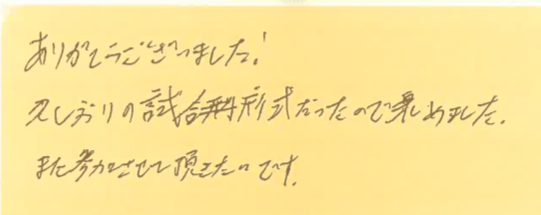 ありがとうございました!
久しぶりの試合形式だったので楽しめました.
また参加させて頂きたいです.